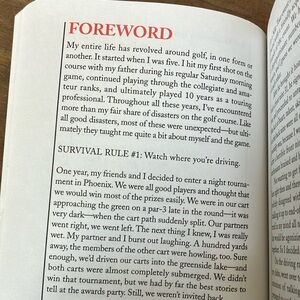 FOREWORD
My entire life has revolved around golf, in one form or
another. It started when I was five. I hit my first shot on the
course with my father during his regular Saturday morning
game, continued playing through the collegiate and ama-
teur ranks, and ultimately played 10 years as a touring
professional. Throughout all these years, I've encountered
more than my fair share of disasters on the golf course. Like
all good disasters, most of these were unexpected—but ulti-
mately they taught me quite a bit about myself and the game.
SURVIVAL RULE #1: Watch where you're driving.
One year, my friends and I decided to enter a night tourna-
ment in Phoenix. We were all good players and thought that
we would win most of the prizes easily. We were in our cart
approaching the green on a par-3 late in the round—it was
very dark—when the cart path suddenly split. Our partners
went right, we went left. The next thing I knew, I was really
wet. My partner and I burst out laughing. A hundred yards
away, the members of the other cart were howling, too. Sure
enough, we'd driven our carts into the greenside lake—and
both carts were almost completely submerged. We didn't
win that tournament, but we had by far the best story to
tell at the awards party. Still, we weren't invited back